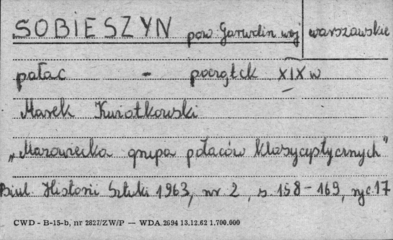 SOBIESZYN pow Garwolin woj warszawskie
pałac - początek XIX w
Marek Kwiatkowski
„Mazowiecka grupa pałaców klasycystycznych"
Biul. Historii Sztuki 1963, nr 2, s. 158-169, ryc. 17
CWD - B-15-b, nr 2827/ZW/P — WDA.2694 13.12.62 1.700.000